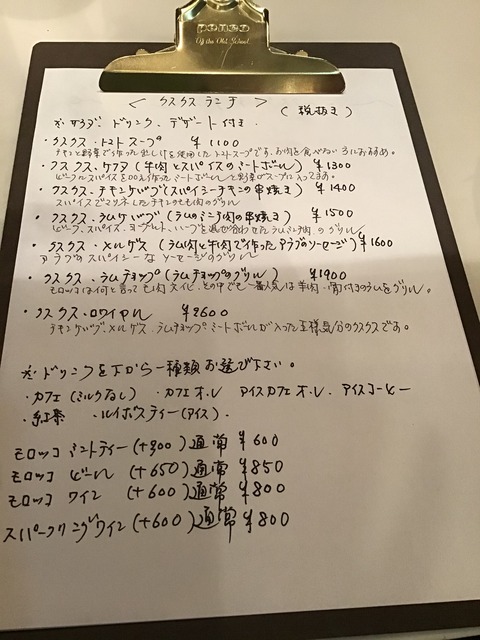 penco
Of the Old School
< クスクスランチ >
(税抜き)
※サラダ、ドリンク、デザート付き.
・クスクス・トマトスープ ¥1100
チキンと野菜で作っただしを使用したトマトスープです。お肉を食べない方におすすめ。
・クスクス・ケフタ (牛肉とスパイスのミートボール) ¥1300
スパイスを 入れ作ったミートボールと野菜がスープに入ってます。
・クスクス・チキンケバブ(スパイシーチキンの串焼き) ¥1400
スパイスでマリネしたチキンのもも肉のグリル
・クスクス・ラムケバブ (ラムのミンチ肉の串焼き) ¥1500
スパイス、ヨーグルト、ハーブを混ぜ合わせたラムミンチ肉のグリル
・クスクス・メルゲス (ラム肉と牛肉で作ったアラブのソーセージ) ¥1600
アラブのスパイシーなソーセージのグリル
・クスクス・ラムチョップ (ラムチョップのグリル) ¥1900
モロッコは何と言っても肉スイ その中でも一番人気は羊肉・骨付きのラムをグリル。
・クスクス・ロワイヤル ¥2600
チキンケバブ、メルゲス、ラムチョップ、ミートボールが入った王様気分のクスクスです。
※ドリンクを下から一種類お選び下さい。
・カフェ(ミルクなし) ・カフェオレ アイスカフェオレ、アイスコーヒー
・紅茶 ・ルイボスティー(アイス).
モロッコ ミントティー (+300) 通常 ¥600
モロッコ ビール (+650) 通常 ¥850
モロッコ ワイン (+600) 通常 ¥800
スパークリングワイン (+600) 通常 ¥800